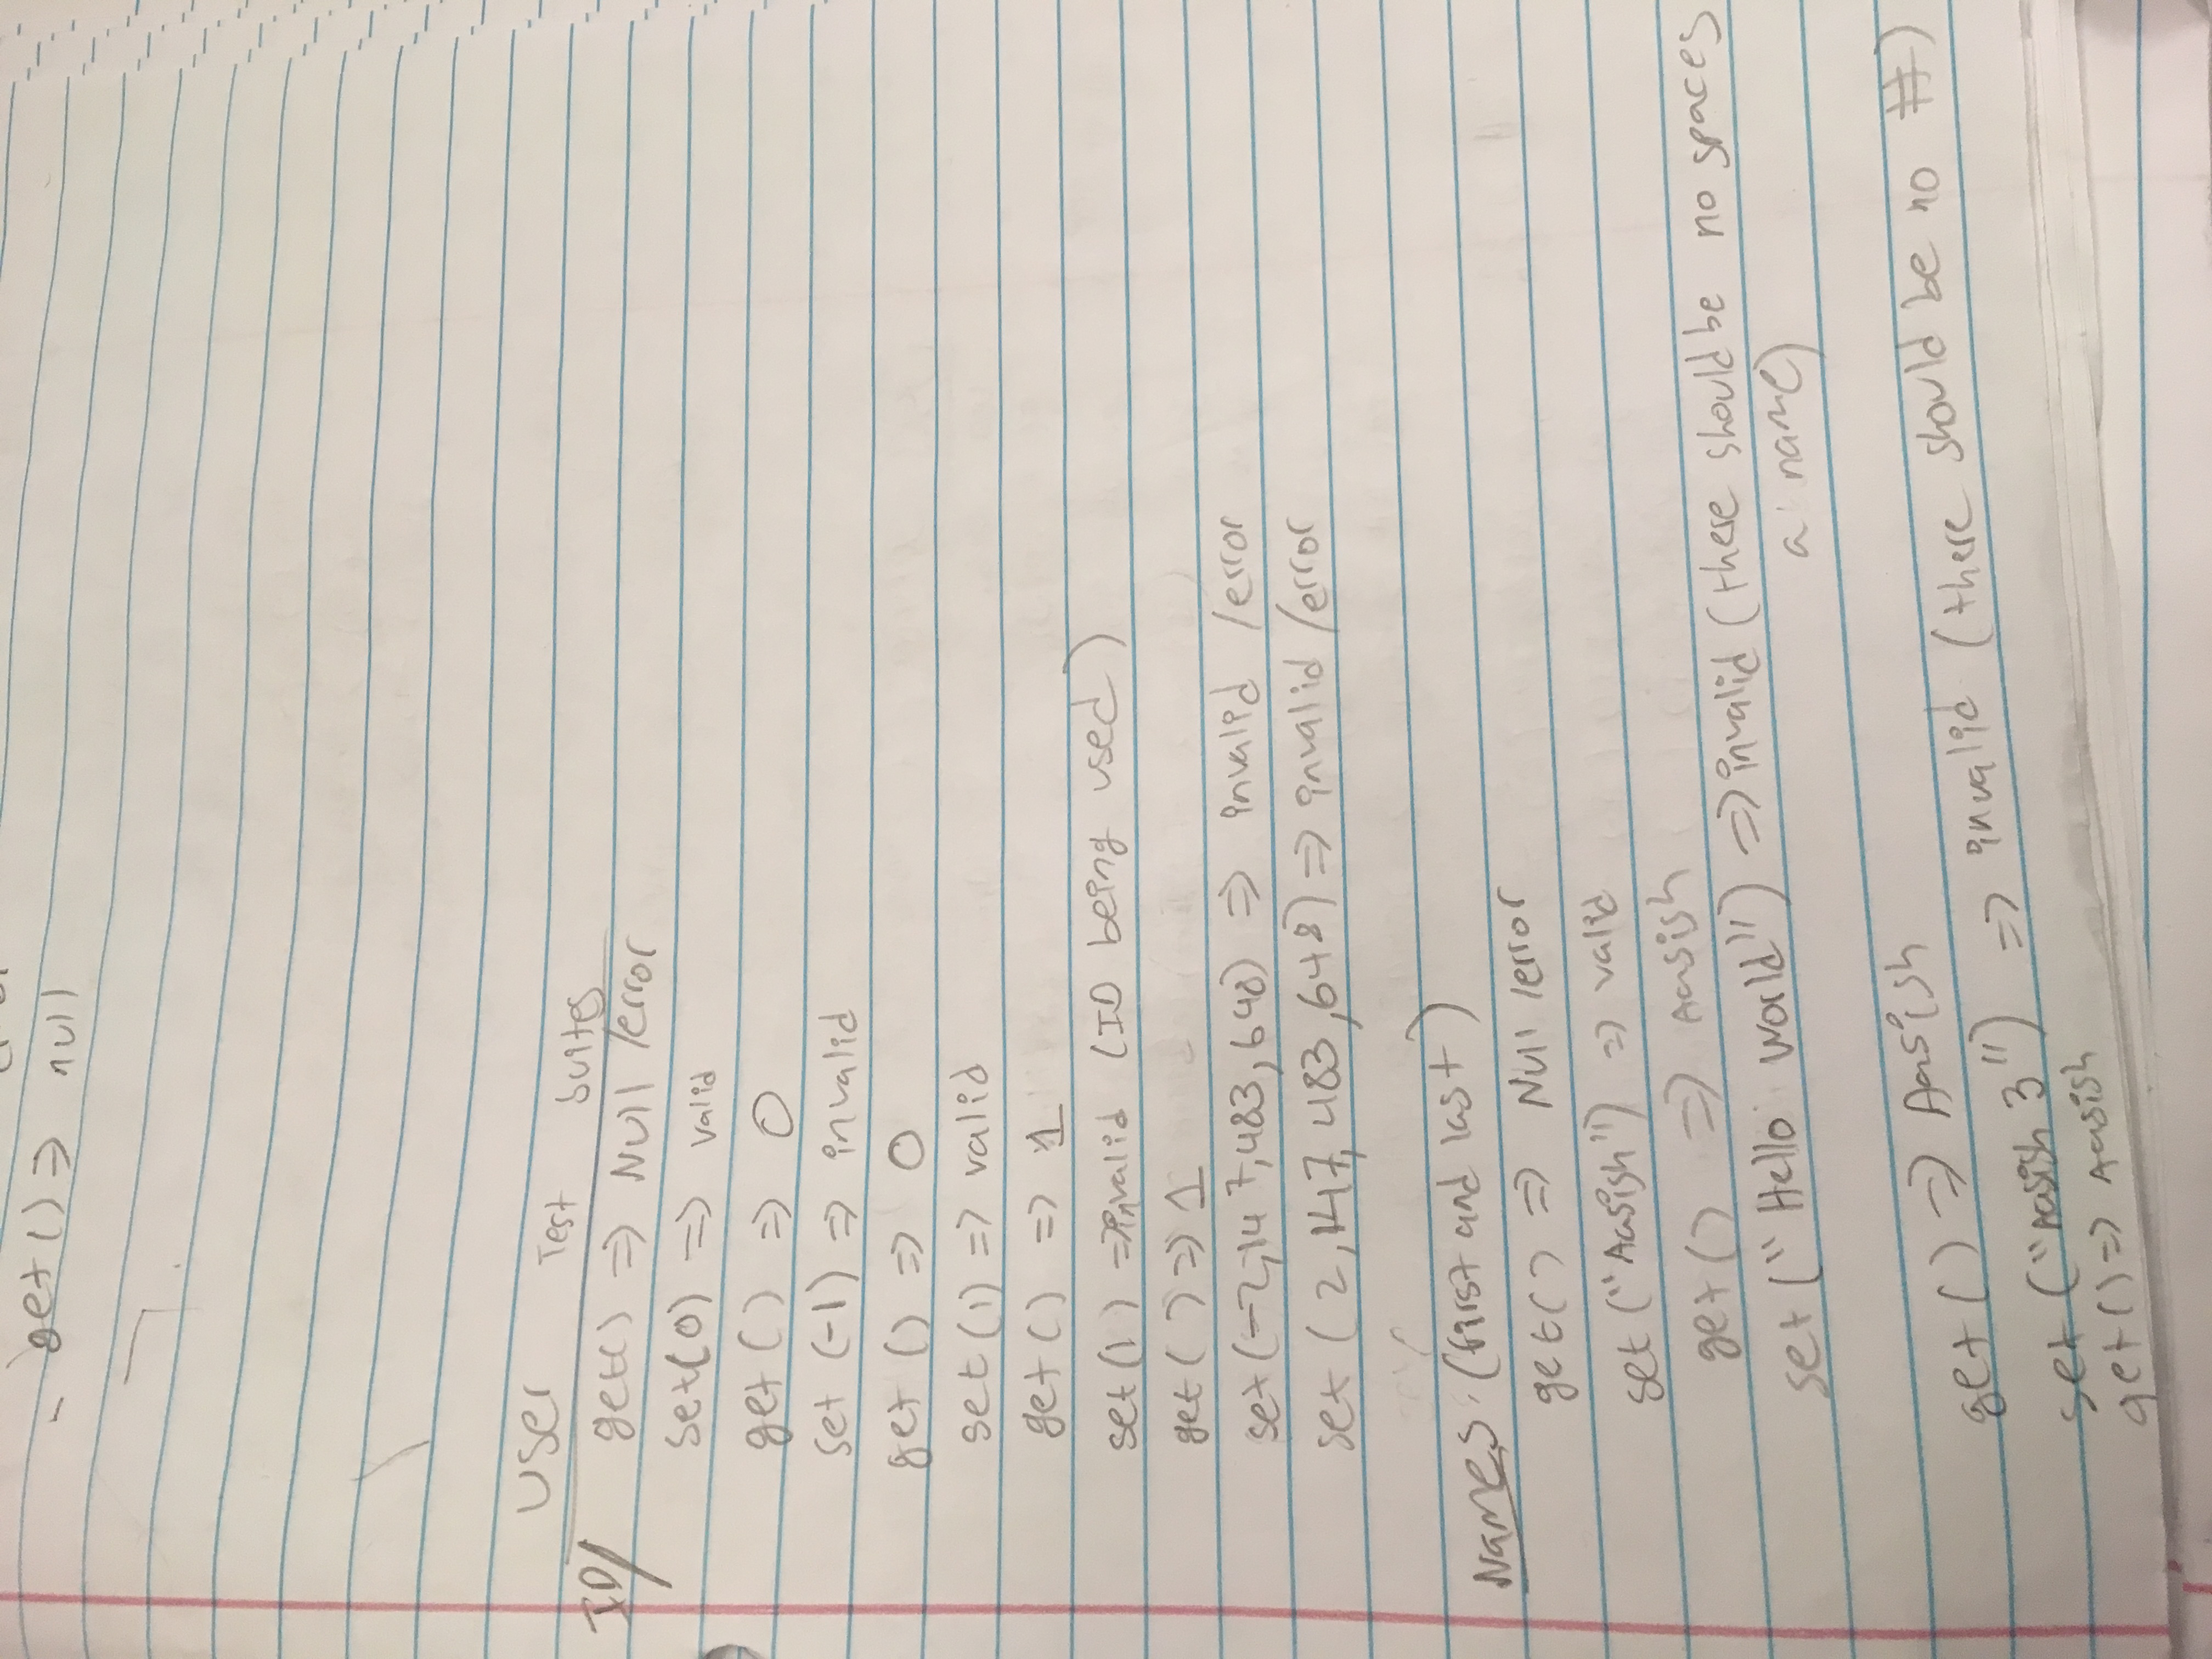 - get() => null
User Test Suites
ID/ get() => Null /error
set(0) => valid
get() => 0
set (-1) => invalid
get () => 0
set (1) => valid
get () => 1
set (1) => invalid (ID being used)
get () => 1
set (-2,147,483,648) => invalid /error
set (2,147,483,648) => invalid /error
Names: (first and last)
get() => Null /error
set ("Aasish") => valid
get () => Aasish
set ("Hello world") => invalid (there should be no spaces
a name)
get () => Aasish
set ("Aasish 3") => invalid (there should be no #)
get () => Aasish